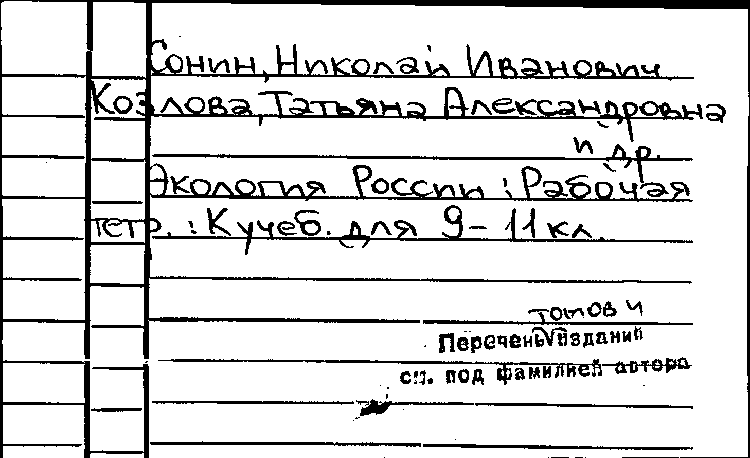 Сонин, Николай Иванович
Козлова, Татьяна Александровна
и др.
Экология России : Рабочая
тетр. : К учеб. для 9-11 кл.
томов и
Перечень изданий
см. под фамилией автора